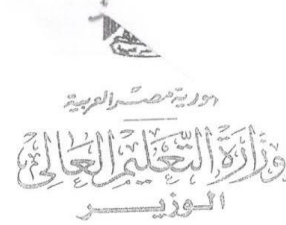 مهورية مصر العربية
وزارة التعليم العالى
الوزير